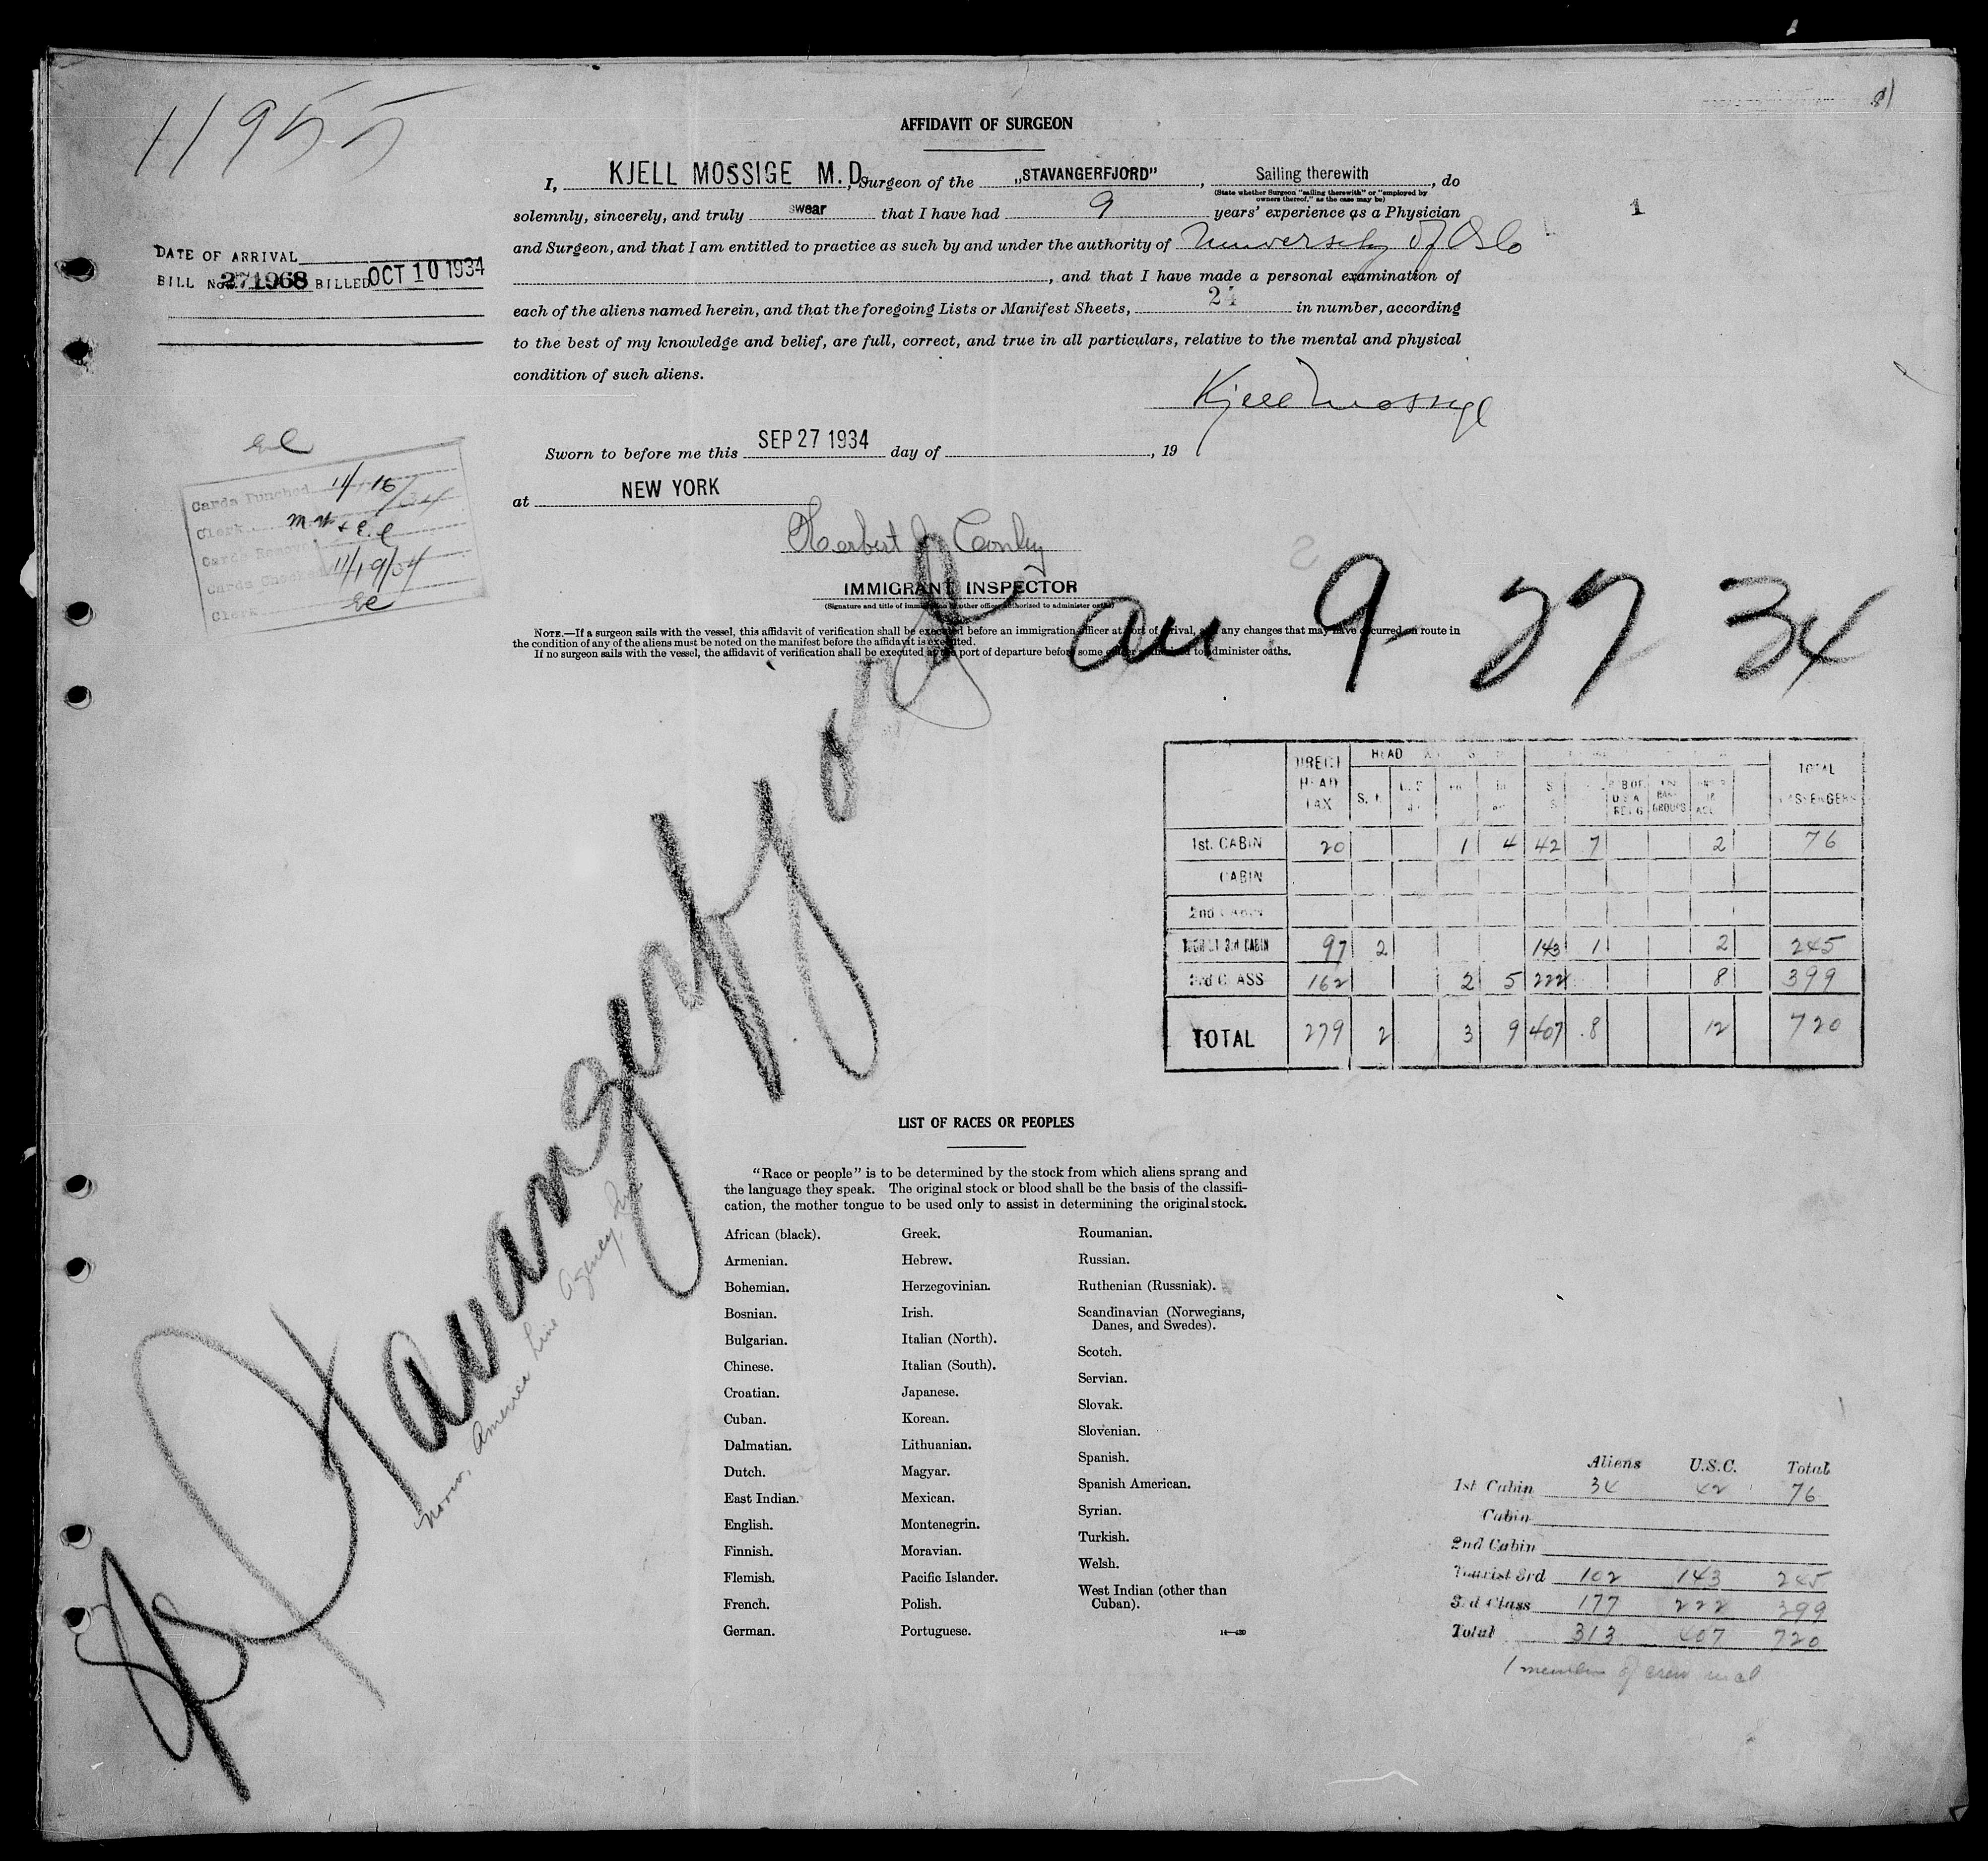 11955
AFFIDAVIT OF SURGEON
I, KJELL MOSSIGE M.D., Surgeon of the „STAVANGERFJORD”, Sailing therewith, do
(State whether Surgeon "sailing therewith" or "employed by
owners thereof," as the case may be)
solemnly, sincerely, and truly swear that I have had 9 years' experience as a Physician
1
and Surgeon, and that I am entitled to practice as such by and under the authority of University of Oslo
, and that I have made a personal examination of
each of the aliens named herein, and that the foregoing Lists or Manifest Sheets, 24 in number, according
to the best of my knowledge and belief, are full, correct, and true in all particulars, relative to the mental and physical
condition of such aliens.
Kjell Mossige
DATE OF ARRIVAL
BILL No. 271968 BILLED OCT 10 1934
Sworn to before me this SEP 27 1934 day of , 19
at NEW YORK
Herbert Conley
IMMIGRANT INSPECTOR
(Signature and title of immigration or other officer authorized to administer oaths)
Cards Punched 11/16/34
Clerk
Cards Checked 11/19/34
Clerk
NOTE.—If a surgeon sails with the vessel, this affidavit of verification shall be executed before an immigration officer at port of arrival, and any changes that may have occurred en route in
the condition of any of the aliens must be noted on the manifest before the affidavit is executed.
If no surgeon sails with the vessel, the affidavit of verification shall be executed at the port of departure before some officer authorized to administer oaths.
SS Stavangerfjord arr 9 27 34
Norw. America Line Agency Inc
DIRECT HEAD TAX HEAD TOTAL PASSENGERS
1st. CABIN 20 1 4 42 7 2 76
CABIN
2nd CABIN
TOURIST 3rd CABIN 97 2 143 1 2 245
3rd CLASS 162 2 5 222 8 399
TOTAL 279 2 3 9 407 8 12 720
LIST OF RACES OR PEOPLES
"Race or people" is to be determined by the stock from which aliens sprang and
the language they speak. The original stock or blood shall be the basis of the classifi-
cation, the mother tongue to be used only to assist in determining the original stock.
African (black).
Armenian.
Bohemian.
Bosnian.
Bulgarian.
Chinese.
Croatian.
Cuban.
Dalmatian.
Dutch.
East Indian.
English.
Finnish.
Flemish.
French.
German.
Greek.
Hebrew.
Herzegovinian.
Irish.
Italian (North).
Italian (South).
Japanese.
Korean.
Lithuanian.
Magyar.
Mexican.
Montenegrin.
Moravian.
Pacific Islander.
Polish.
Portuguese.
Roumanian.
Russian.
Ruthenian (Russniak).
Scandinavian (Norwegians,
Danes, and Swedes).
Scotch.
Servian.
Slovak.
Slovenian.
Spanish.
Spanish American.
Syrian.
Turkish.
Welsh.
West Indian (other than
Cuban).
14—430
Aliens U.S.C. Total
1st Cabin 34 42 76
Cabin
2nd Cabin
Tourist 3rd 102 143 245
3rd Class 177 222 399
Total 313 407 720
1 member of crew